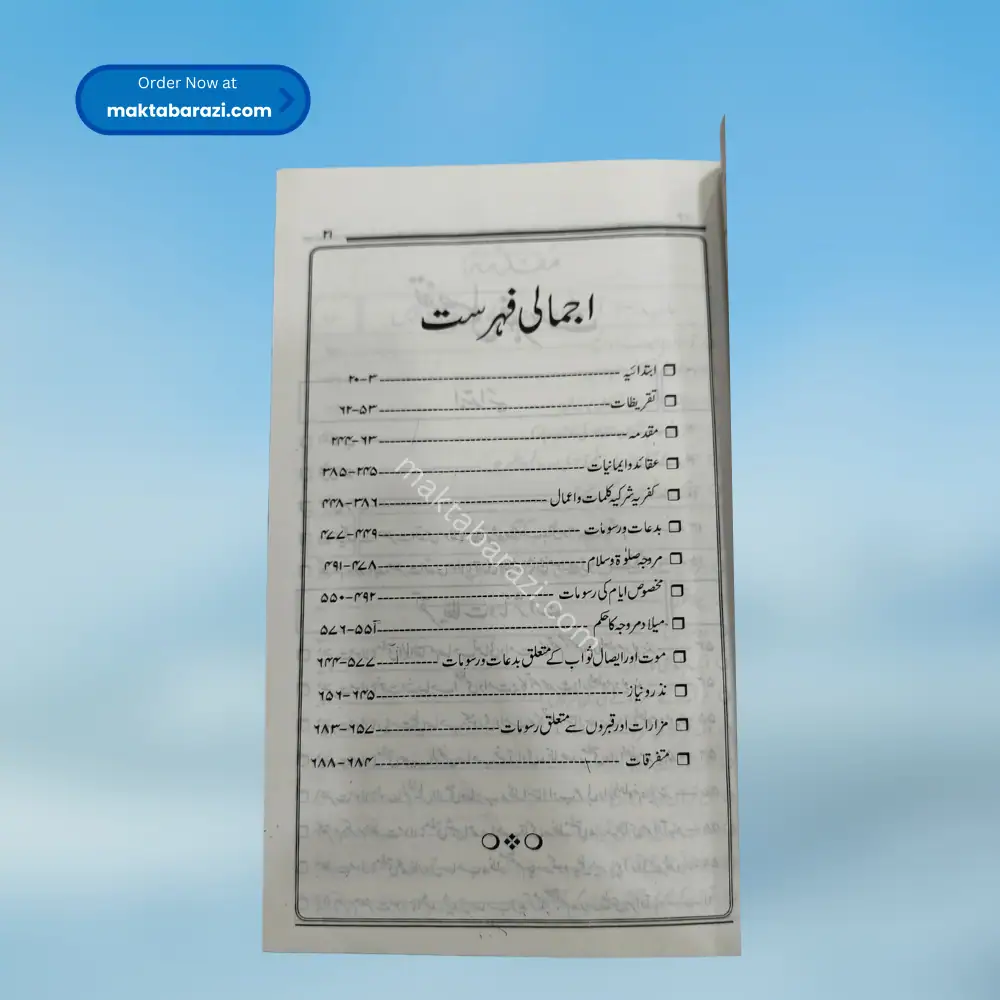 Order Now at
maktabarazi.com
۲۱
اجمالی فہرست
❐ ابتدائیہ ---------- ۳-۲۰
❐ تقریظات ---------- ۵۳-۶۲
❐ مقدمہ ---------- ۶۳-۲۴۴
❐ عقائد و ایمانیات ---------- ۲۴۵-۳۸۵
❐ کفریہ شرکیہ کلمات و اعمال ---------- ۳۸۶-۴۴۸
❐ بدعات و رسومات ---------- ۴۴۹-۴۷۷
❐ مروجہ صلوٰۃ و سلام ---------- ۴۷۸-۴۹۱
❐ مخصوص ایام کی رسومات ---------- ۴۹۲-۵۵۰
❐ میلاد مروجہ کا حکم ---------- ۵۵۱-۵۷۶
❐ موت اور ایصال ثواب کے متعلق بدعات و رسومات ---------- ۵۷۷-۶۴۴
❐ نذر و نیاز ---------- ۶۴۵-۶۵۶
❐ مزارات اور قبروں سے متعلق رسومات ---------- ۶۵۷-۶۸۳
❐ متفرقات ---------- ۶۸۴-۶۸۸
maktabarazi.com